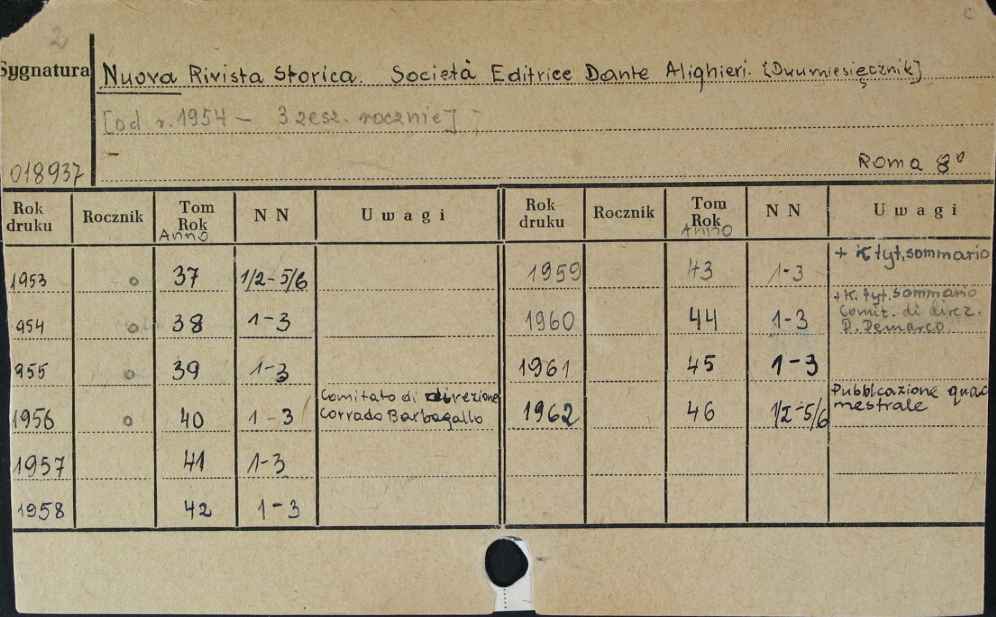 2 c
Sygnatura Nuova Rivista Storica. Società Editrice Dante Alighieri. [Dwumiesięcznik]
[od r. 1954 – 3 zesz. rocznie]
018937 – Roma 8°
Rok druku Rocznik Tom Rok Anno NN Uwagi Rok druku Rocznik Tom Rok Anno NN Uwagi
1953 o 37 1/2-5/6 1959 43 1-3 + K. tyt, sommario
954 o 38 1-3 1960 44 1-3 + K. tyt. sommario Comit. di direz. D. Demarco
955 o 39 1-3 1961 45 1-3
1956 o 40 1-3 Comitato di direzione Corrado Barbagallo 1962 46 1/2-5/6 Pubblcazione quad mestrale
1957 41 1-3
1958 42 1-3